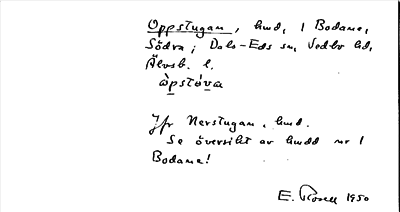 Oppstugan, hmd, 1 Bodane,
Södra; Dals-Eds sn, Vedbo hd,
Älvsb. l.
òpstúva
Jfr Nerstugan, hmd.
Se översikt av hmdd nr 1
Bodane!
E. Rosell 1950